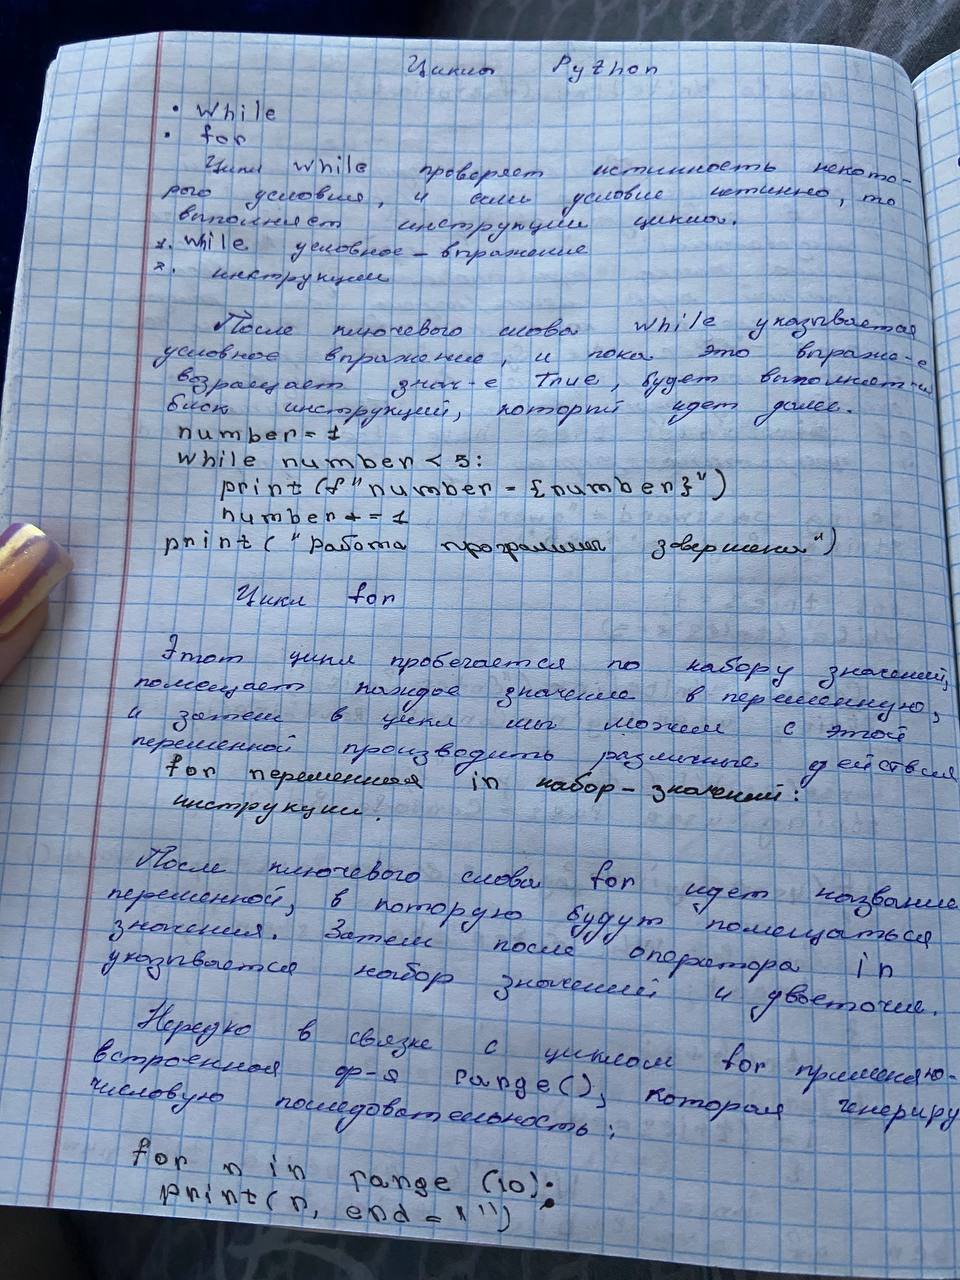 Циклы Python
• while
• for
Цикл while проверяет истинность некото-
рого условия, и если условие истинно, то
выполняет инструкции цикла.
1. while условное - выражение
2. инструкции
После ключевого слова while указывается
условное выражение, и пока это выраже-е
возращает знач-е True, будет выполнят-ся
блок инструкций, который идет далее.
number = 1
while number < 5:
print (f"number - {number}")
number += 1
print ("Работа программы завершена")
Цикл for
Этот цикл пробегается по набору значений,
помещает каждое значение в переменную,
и затем в цикл мы можем с этой
переменной производить различные действия
for переменная in набор-значений:
инструкции.
После ключевого слова for идет название
переменной, в которую будут помещаться
значения. Затем после оператора in
указывается набор значений и двоеточие.
Нередко в связке с циклом for применяю-
встроенная ф-я range(), которая генериру
числовую последовательность:
for n in range (10):
print(n, end = " ")